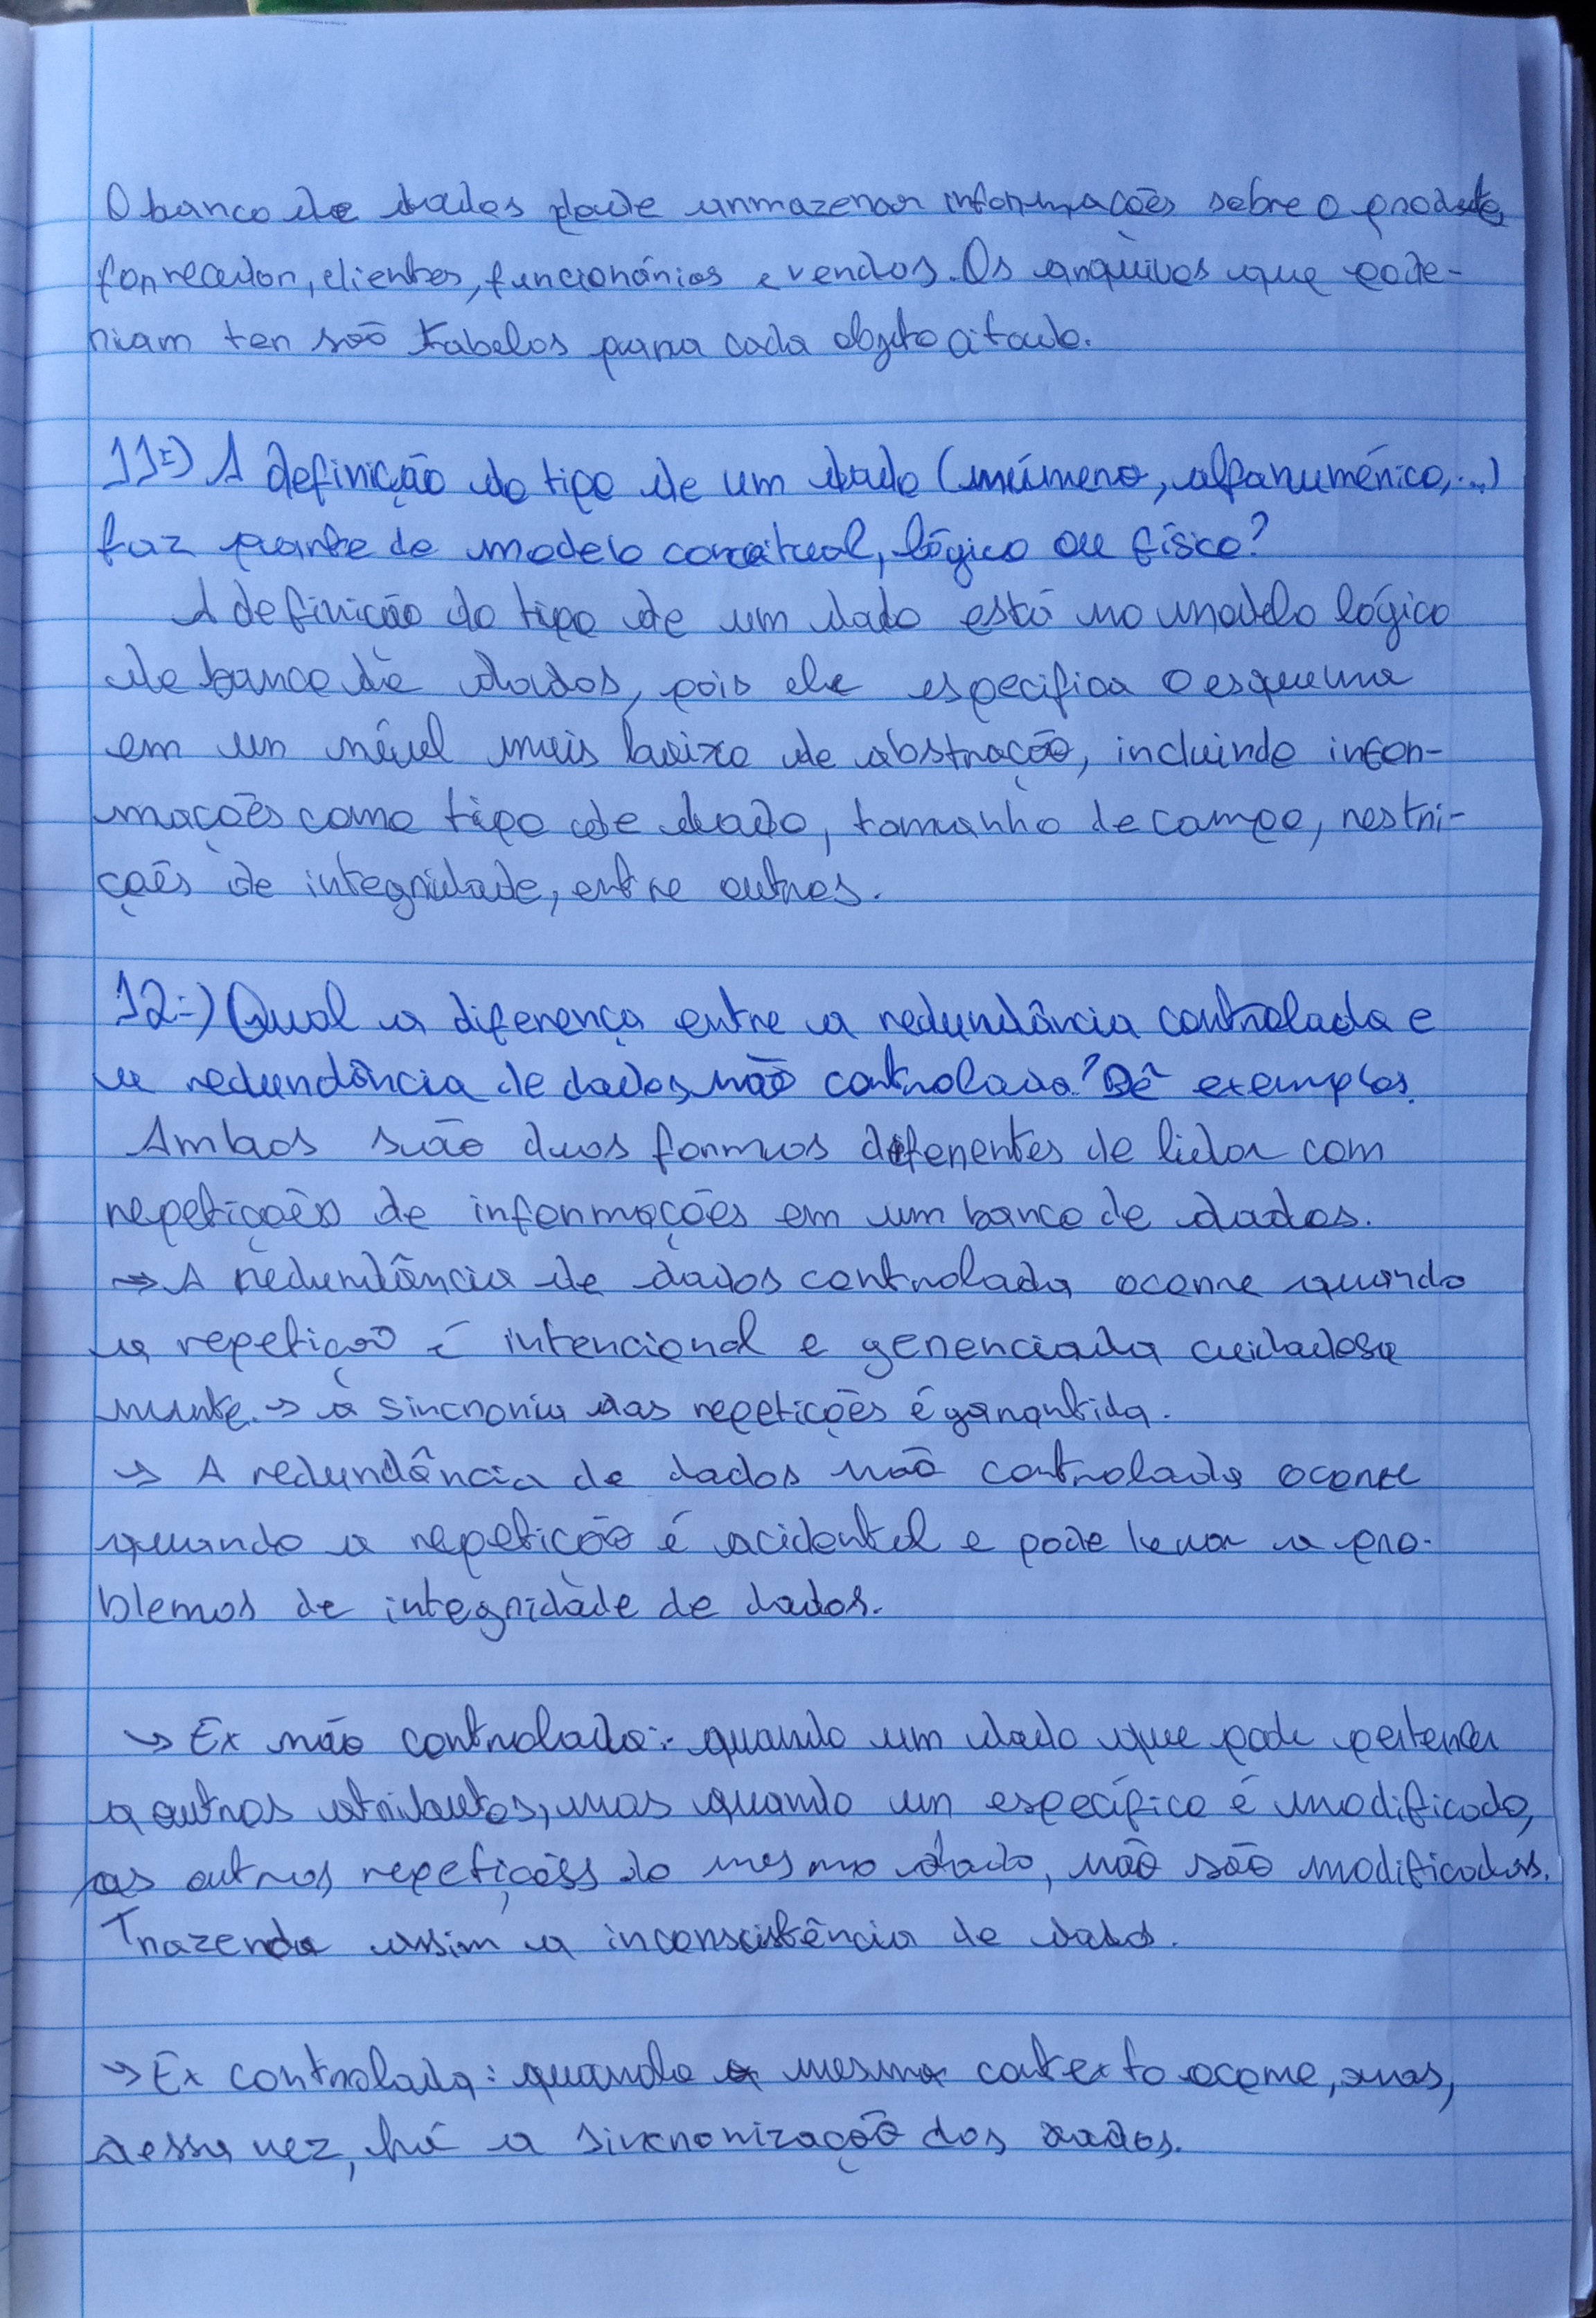 O banco de dados pode armazenar informações sobre o produto,
fornecedor, clientes, funcionários e vendas. Os arquivos que pode-
riam ter são tabelas para cada objeto citado.
11-) A definição do tipo de um dado (número, alfanumérico,...)
faz parte do modelo conceitual, lógico ou físico?
A definição do tipo de um dado está no modelo lógico
de banco de dados, pois ele especifica o esquema
em um nível mais baixo de abstração, incluindo infor-
mações como tipo de dado, tamanho de campo, restri-
ções de integridade, entre outros.
12-) Qual a diferença entre a redundância controlada e
a redundância de dados não controlada? Dê exemplos.
Ambas são duas formas diferentes de lidar com
repetições de informações em um banco de dados.
→ A redundância de dados controlada ocorre quando
a repetição é intencional e gerenciada cuidadosa
mente. → a sincronia das repetições é garantida.
→ A redundância de dados não controlada ocorre
quando a repetição é acidental e pode levar a pro-
blemas de integridade de dados.
→ Ex não controlada: quando um dado que pode pertencer
a outros atributos, mas quando um específico é modificado,
as outras repetições do mesmo dado, não são modificadas.
Trazendo assim a inconscistência de dados.
→ Ex controlada: quando o mesmo contexto ocorre, mas,
dessa vez, há a sincronização dos dados.